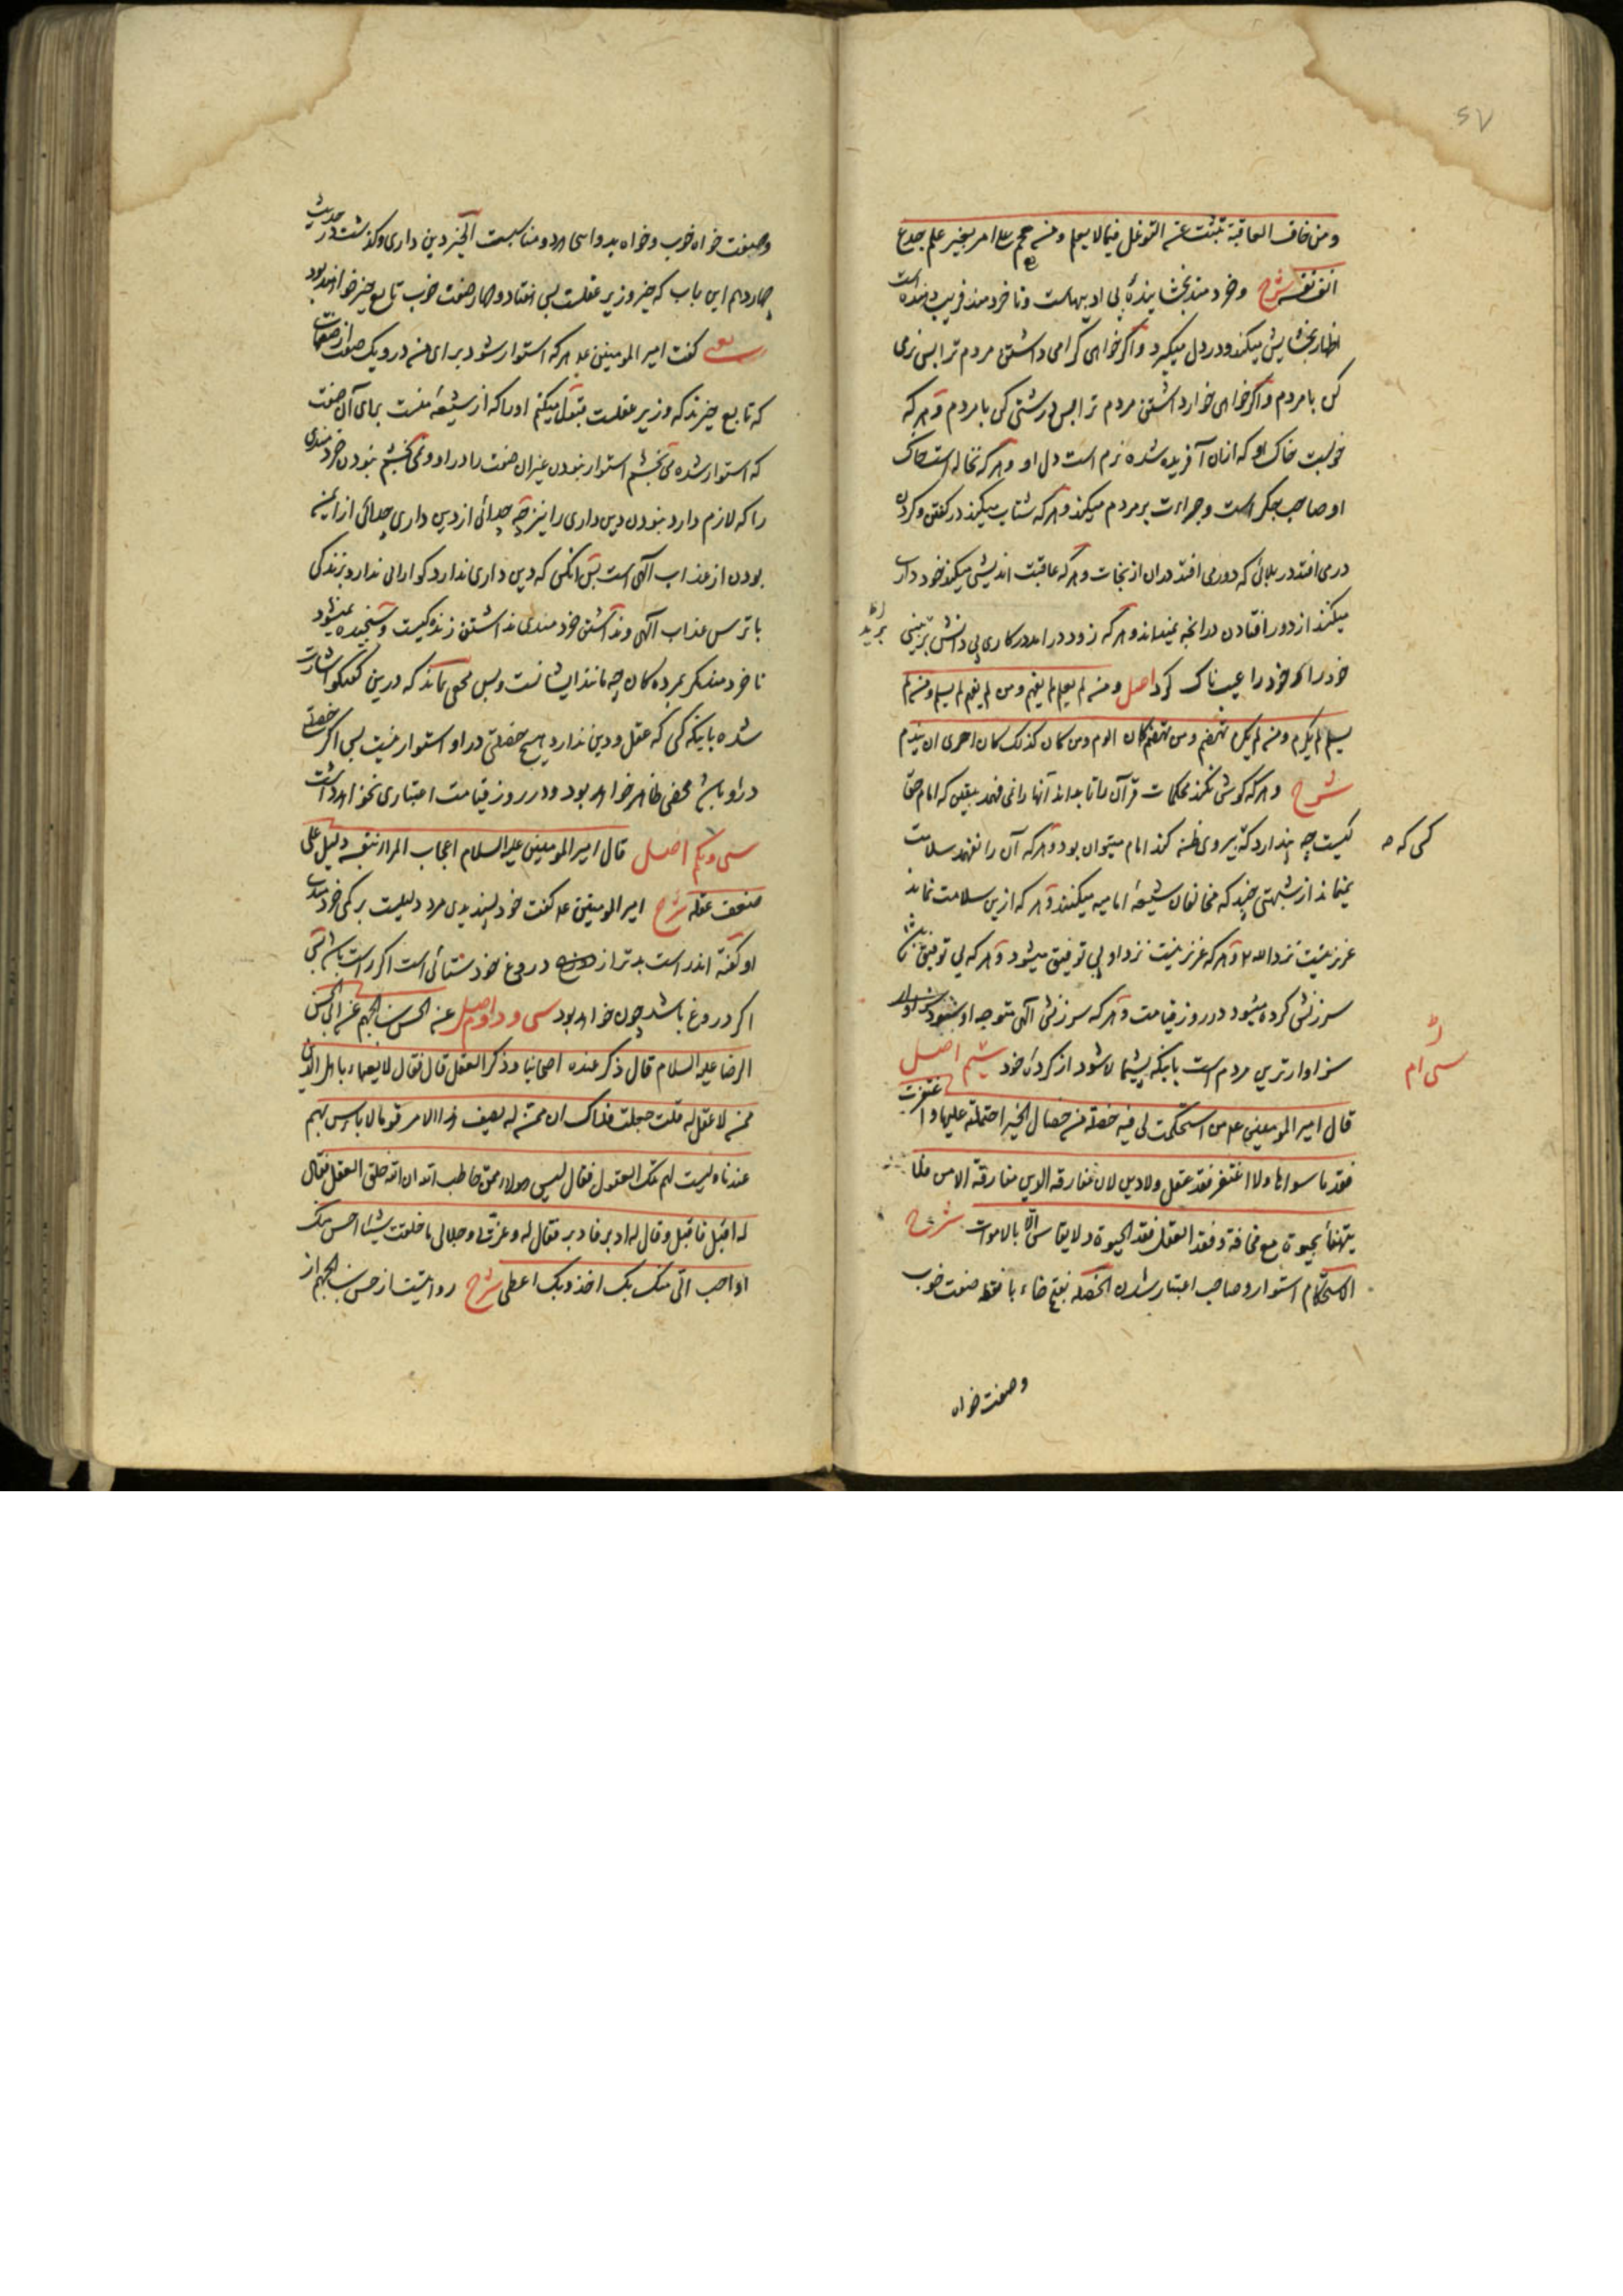 ومن خاف العاقبة تثبت عن التوغل فیما لا یعلم ومن هجم علی امر بغیر علم جدع
انف نفسه شرح وخردمند بخشاینده بی ادبیهاست ونا خردمند فریب دهنده است
اظهار بخشایش میکند ودر دل میگیرد واگر خواهی گرامی داشتن مردم ترا پس نرمی
کن با مردم واگر خواهی خوار داشتن مردم ترا پس درشتی کن با مردم وهر که
خوبست خاک او که ازان آفریده شده نرم است دل او وهر که نخاله است خاک
او صاحب جگر است وجراءت بر مردم میکند وهر که شتاب میکند در گفتن وکردن
در می افتد در بلائی که دور می افتد دران از نجات وهر که عاقبت اندیشی میکند خود داری
میکند از دور افتادن در آنچه نمیداند وهر که زود در امد در کاری بی دانش بینی
خود را که خود را عیب ناک کرد اصل ومن لم یعلم لم یفهم ومن لم یفهم لم یسلم ومن لم
یسلم لم یکرم ومن لم یکرم تهضم ومن تهضم کان الوم ومن کان کذلک کان احری ان یندم
شرح وهر که گوش نکند محکمات قرآن را تا بداند آنها را نمی فهمد بیقین که امام حق
کیست چه پندارد که پیروی ظن کند امام میتوان بود وهر که آن را نفهمد سلامت
کسی که
نمیماند از شبهتی چند که مخالفان شیعهٔ امامیه میکنند وهر که ازین سلامت نماند
عزیز نیست نزد الله وهر که عزیز نیست نزد او بی توفیق میشود وهر که بی توفیق
سرزنش کرده میشود در روز قیامت وهر که سرزنش آلهی متوجه او شود
سزاوارترین مردم است باینکه پشیمان شود از کردهٔ خود شیم اصل
سی ام
قال امیر المومنین ع من استحکمت لی فیه خصلة من خصال الخیر احتملته علیها واغتفرت
فقد ما سواها ولا اغتفر فقد عقل ولا دین لان مفارقة الدین مفارقة الامن فلا
یتهنأ بحیوة مع مخافة وفقد العقل فقد الحیوة ولا یقاس الا بالاموات شرح
الاستحکام استوار وصاحب اعتبار شدن الخصلة بفتح خاء با نقطه صفت خوب
وصفت خواه
وصفت خواه خوب وخواه بد واینجا مراد مناسبت الخیر دین داری وگذشت در حدیث
چاردهم این باب که خیر وزیر عقلست پس هفتاد وچهار صفت خوب تابع خیر خواهند بود
یعنی گفت امیر المومنین ع هر که استوار شود برای من در او یک صفت از صفات
که تابع خیرند که وزیر عقلست قبول میکنم او را که از شیعهٔ منست برای آن صفت
که استوار شده می بخشم استوار نبودن غیر آن صفت را در او ونمی بخشم نبودن خردمندی
را که لازم دارد نبودن دین داری را نیز چه جدائی از دین داری جدائی از ایمن
بودن از عذاب آلهی است پس آنکس که دین داری ندارد گوارائی ندارد بزندگی
با ترس عذاب آلهی ونداشتن خردمندی نداشتن زندگیست وسنجیده نمیشود
نا خردمند مگر بمردگان چه مانند ایشانست وبس مخفی نماند که درین گفتگو اشارت
شده باینکه کسی که عقل ودین ندارد هیچ خصلتی در او استوار نیست پس اگر خصلتی
در او باشد محض ظاهر خواهد بود ودر روز قیامت اعتباری نخواهد داشت
سی ویکم اصل قال امیر المومنین علیه السلام اعجاب المرء بنفسه دلیل علی
ضعف عقله شرح امیر المومنین ع گفت خود پسندیدن مرد دلیلست بر کمی خردمندی
او گفته اند راست بدتر از دروغ خودستائی است اگر راست باشد
اگر دروغ باشد چون خواهد بود سی ودوم اصل عن الحسن بن الجهم عن ابی الحسن
الرضا علیه السلام قال ذکر عنده اصحابنا وذکر العقل قال فقال لا یعباء باهل الدین
ممن لا عقل له قلت جعلت فداک ان ممن یصف هذا الامر قوما لا باس بهم
عندنا ولیست لهم تلک العقول فقال لیس هولاء ممن خاطب الله ان الله خلق العقل فقال
له اقبل فاقبل وقال له ادبر فادبر فقال له وعزتی وجلالی ما خلقت شیئا احسن منک
او احب الی منک بک اخذ وبک اعطی شرح روایتست از حسن بن الجهم از